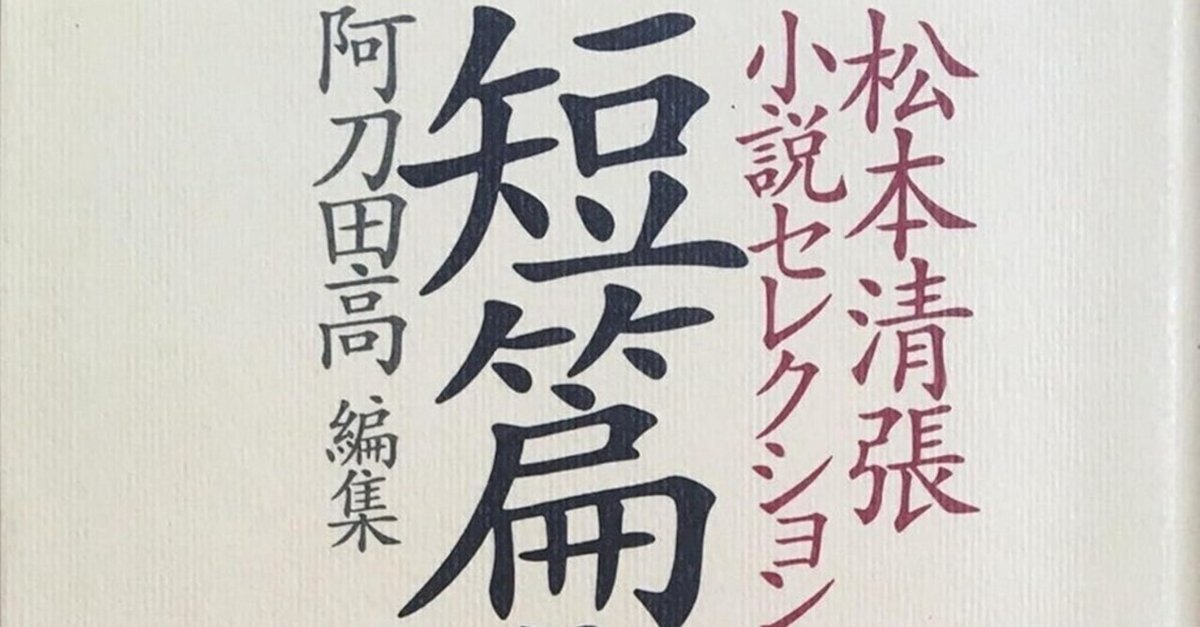 松本清張
小説セレクション
短篇
阿刀田高 編集